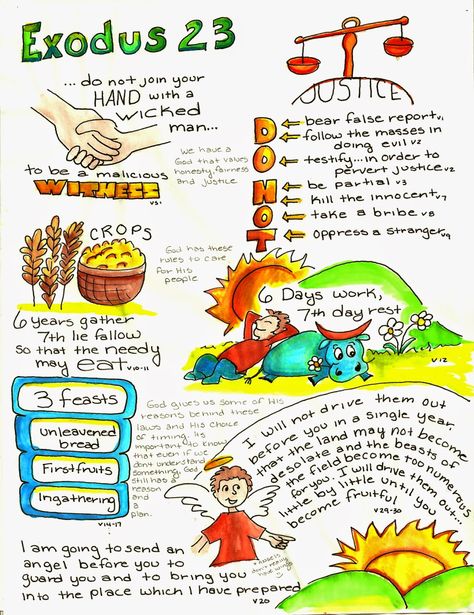 Exodus 23
...do not join your
HAND with a
wicked
man...
to be a malicious
WITNESS
v1
We have a
God that values
honesty, fairness
and justice
JUSTICE
DO NOT
← bear false report v1
← follow the masses in
doing evil v2
← testify...in order to
pervert justice v2
← be partial v3
← kill the innocent v7
← take a bribe v8
← oppress a stranger v9
CROPS
God has these
rules to care
for His
people
6 years gather
7th lie fallow
so that the needy
may eat v10-11
6 Days work,
7th day rest
v12
3 feasts
unleavened
bread
Firstfruits
Ingathering
v14-17
God gives us some of His
reasons behind these
laws and His choice
of timing. It's
important to know
that even if we
don't understand
something, God
still has a
reason
and
a
plan.
I will not drive them out
before you in a single year
that the land may not become
desolate and the beasts of
the field become too numerous
for you. I will drive them out
little by little until you...
become fruitful! v29-30
I am going to send an
angel before you to
guard you and to bring you
into the place which I have prepared
v20
* Angels
don't really
have wings